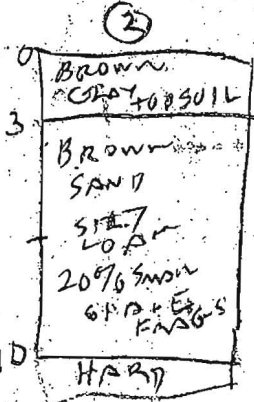 2
0
BROWN
GRAY TOPSOIL
3
BROWN
SAND
SILT
LOAM
20% SMALL
FRAGS
D
HARD